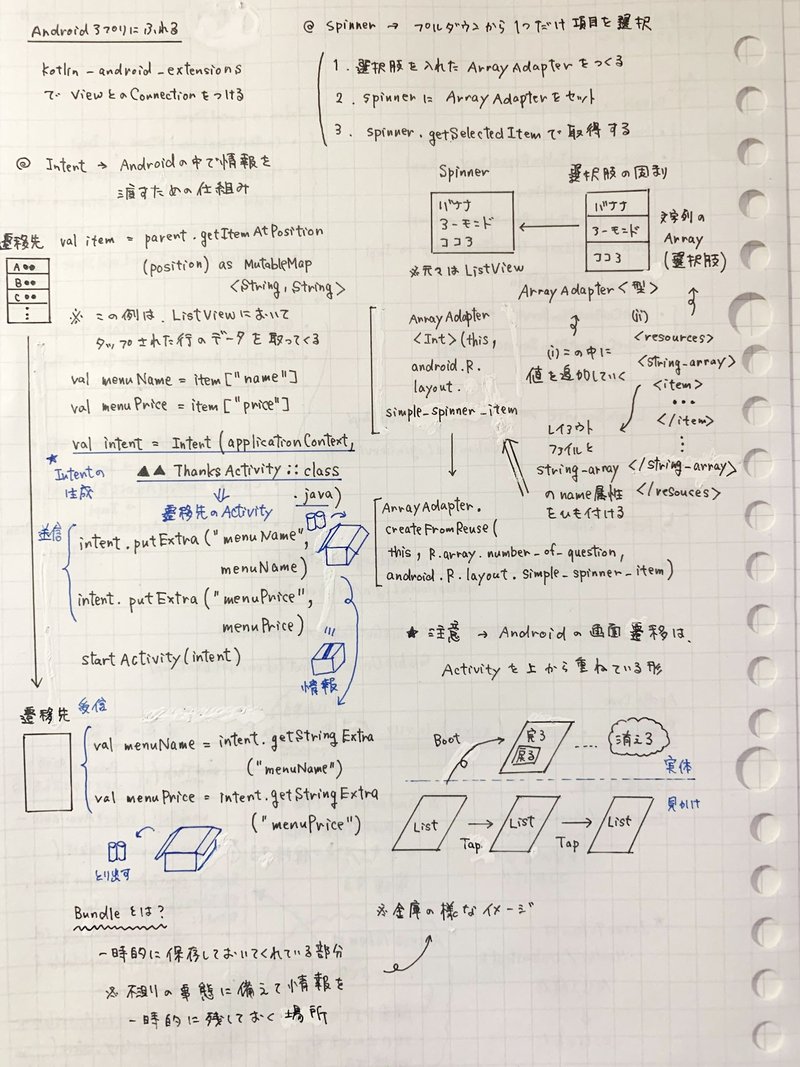 Androidアプリにふれる
kotlin-android-extensions
で ViewとのConnectionをつける
@ Intent → Androidの中で情報を
渡すための仕組み
遷移先
A
B
C
val item = parent.getItemAtPosition
(position) as MutableMap
<String, String>
※ この例は、ListViewにおいて
タップされた行のデータを取ってくる
val menuName = item["name"]
val menuPrice = item["price"]
val intent = Intent (applicationContext,
▲▲ ThanksActivity :: class
.java)
★
Intentの
生成
⇓
遷移先のActivity
送信
intent.putExtra("menuName",
menuName)
intent.putExtra("menuPrice",
menuPrice)
startActivity(intent)
情報
遷移先
受信
val menuName = intent.getStringExtra
("menuName")
val menuPrice = intent.getStringExtra
("menuPrice")
とり出す
Bundleとは?
一時的に保存しておいてくれている部分
※ 不測の事態に備えて情報を
一時的に残しておく場所
@ Spinner → プルダウンから1つだけ項目を選択
1. 選択肢を入れた ArrayAdapterをつくる
2. spinnerに ArrayAdapterをセット
3. spinner.getSelectedItemで取得する
Spinner
バナナ
アーモンド
ココア
※元々はListView
選択肢の固まり
バナナ
アーモンド
ココア
文字列の
Array
(選択肢)
ArrayAdapter<型>
(i)この中に
値を追加していく
(ii)
<resources>
<string-array>
<item>
•••
</item>
⋮
</string-array>
</resouces>
ArrayAdapter
<Int>(this,
android.R.
layout.
simple_spinner_item
レイアウト
ファイルと
string-array
のname属性
をひも付ける
ArrayAdapter.
createFromReuse(
this, R.array.number_of_question,
android.R.layout.simple_spinner_item)
★ 注意 → Androidの画面遷移は、
Activityを上から重ねている形
Boot
完了
戻る
消える
実体
見かけ
List
Tap
List
Tap
List
※金庫の様なイメージ